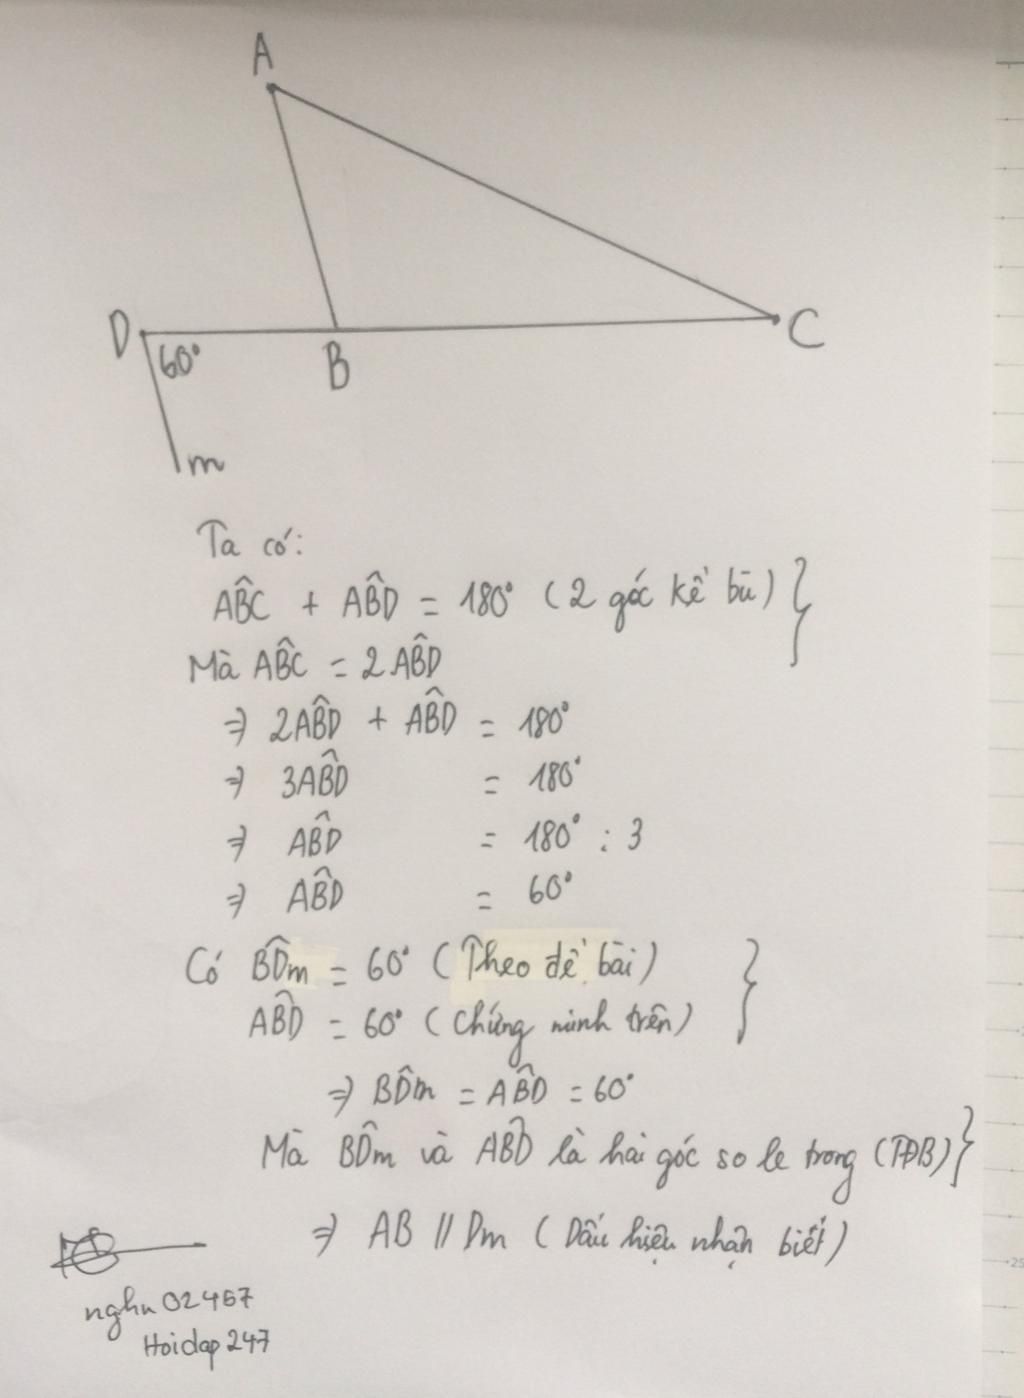 A
D
60°
B
C
m
Ta có:
AB̂C + AB̂D = 180° (2 góc kề bù) }
Mà AB̂C = 2AB̂D
⇒ 2AB̂D + AB̂D = 180°
⇒ 3AB̂D = 180°
⇒ AB̂D = 180° : 3
⇒ AB̂D = 60°
Có BD̂m = 60° (Theo đề bài) }
AB̂D = 60° (Chứng minh trên)
⇒ BD̂m = AB̂D = 60°
Mà BD̂m và AB̂D là hai góc so le trong (TĐB) }
⇒ AB // Dm (Dấu hiệu nhận biết)
nghu02467
Hoidap247
25